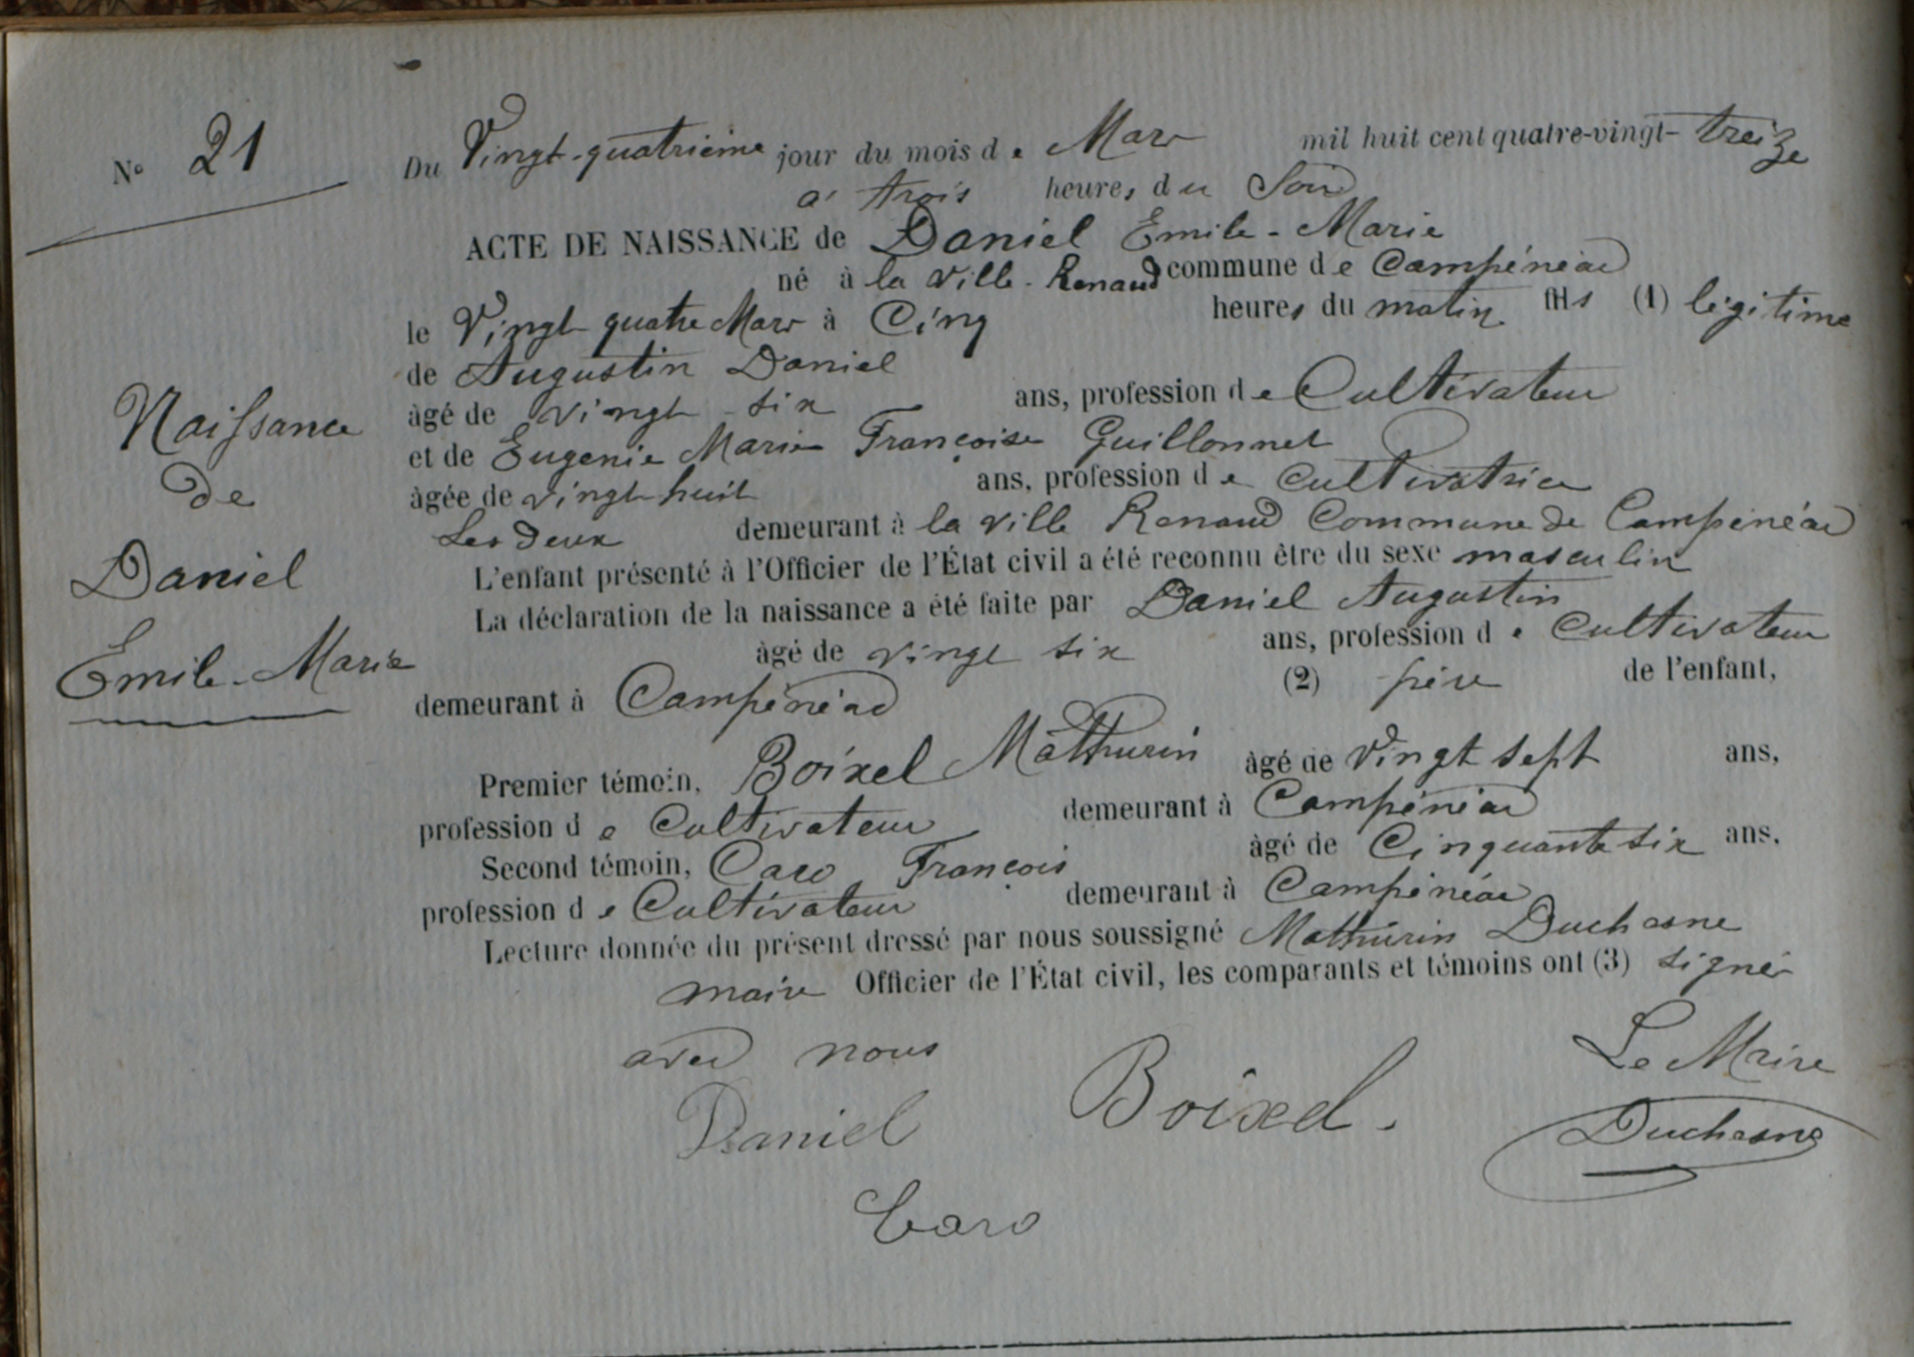 N° 21
Du Vingt-quatrième jour du mois de Mars mil huit cent quatre-vingt-treize
à trois heures du Soir
ACTE DE NAISSANCE de Daniel Emile-Marie
né à la ville-Renaud commune de Campénéac
le Vingt quatre Mars à Cinq heures du matin fils (1) légitime
de Augustin Daniel
âgé de vingt-six ans, profession de Cultivateur
et de Eugenie Marie Françoise Guillonnet
âgée de vingt huit ans, profession de Cultivatrice
Les deux demeurant à la ville Renaud Commune de Campénéac
L'enfant présenté à l'Officier de l'État civil a été reconnu être du sexe masculin
La déclaration de la naissance a été faite par Daniel Augustin
âgé de vingt six ans, profession de Cultivateur
demeurant à Campénéac (2) père de l'enfant,
Premier témoin, Boixel Mathurin âgé de Vingt sept ans,
profession de Cultivateur demeurant à Campénéac
Second témoin, Caro François âgé de Cinquante six ans,
profession de Cultivateur demeurant à Campénéac
Lecture donnée du présent dressé par nous soussigné Mathurin Duchesne
maire Officier de l'État civil, les comparants et témoins ont (3) signé
avec nous
Daniel Boixel. Le Maire
Duchesne
Caro
Naissance
de
Daniel
Emile-Marie